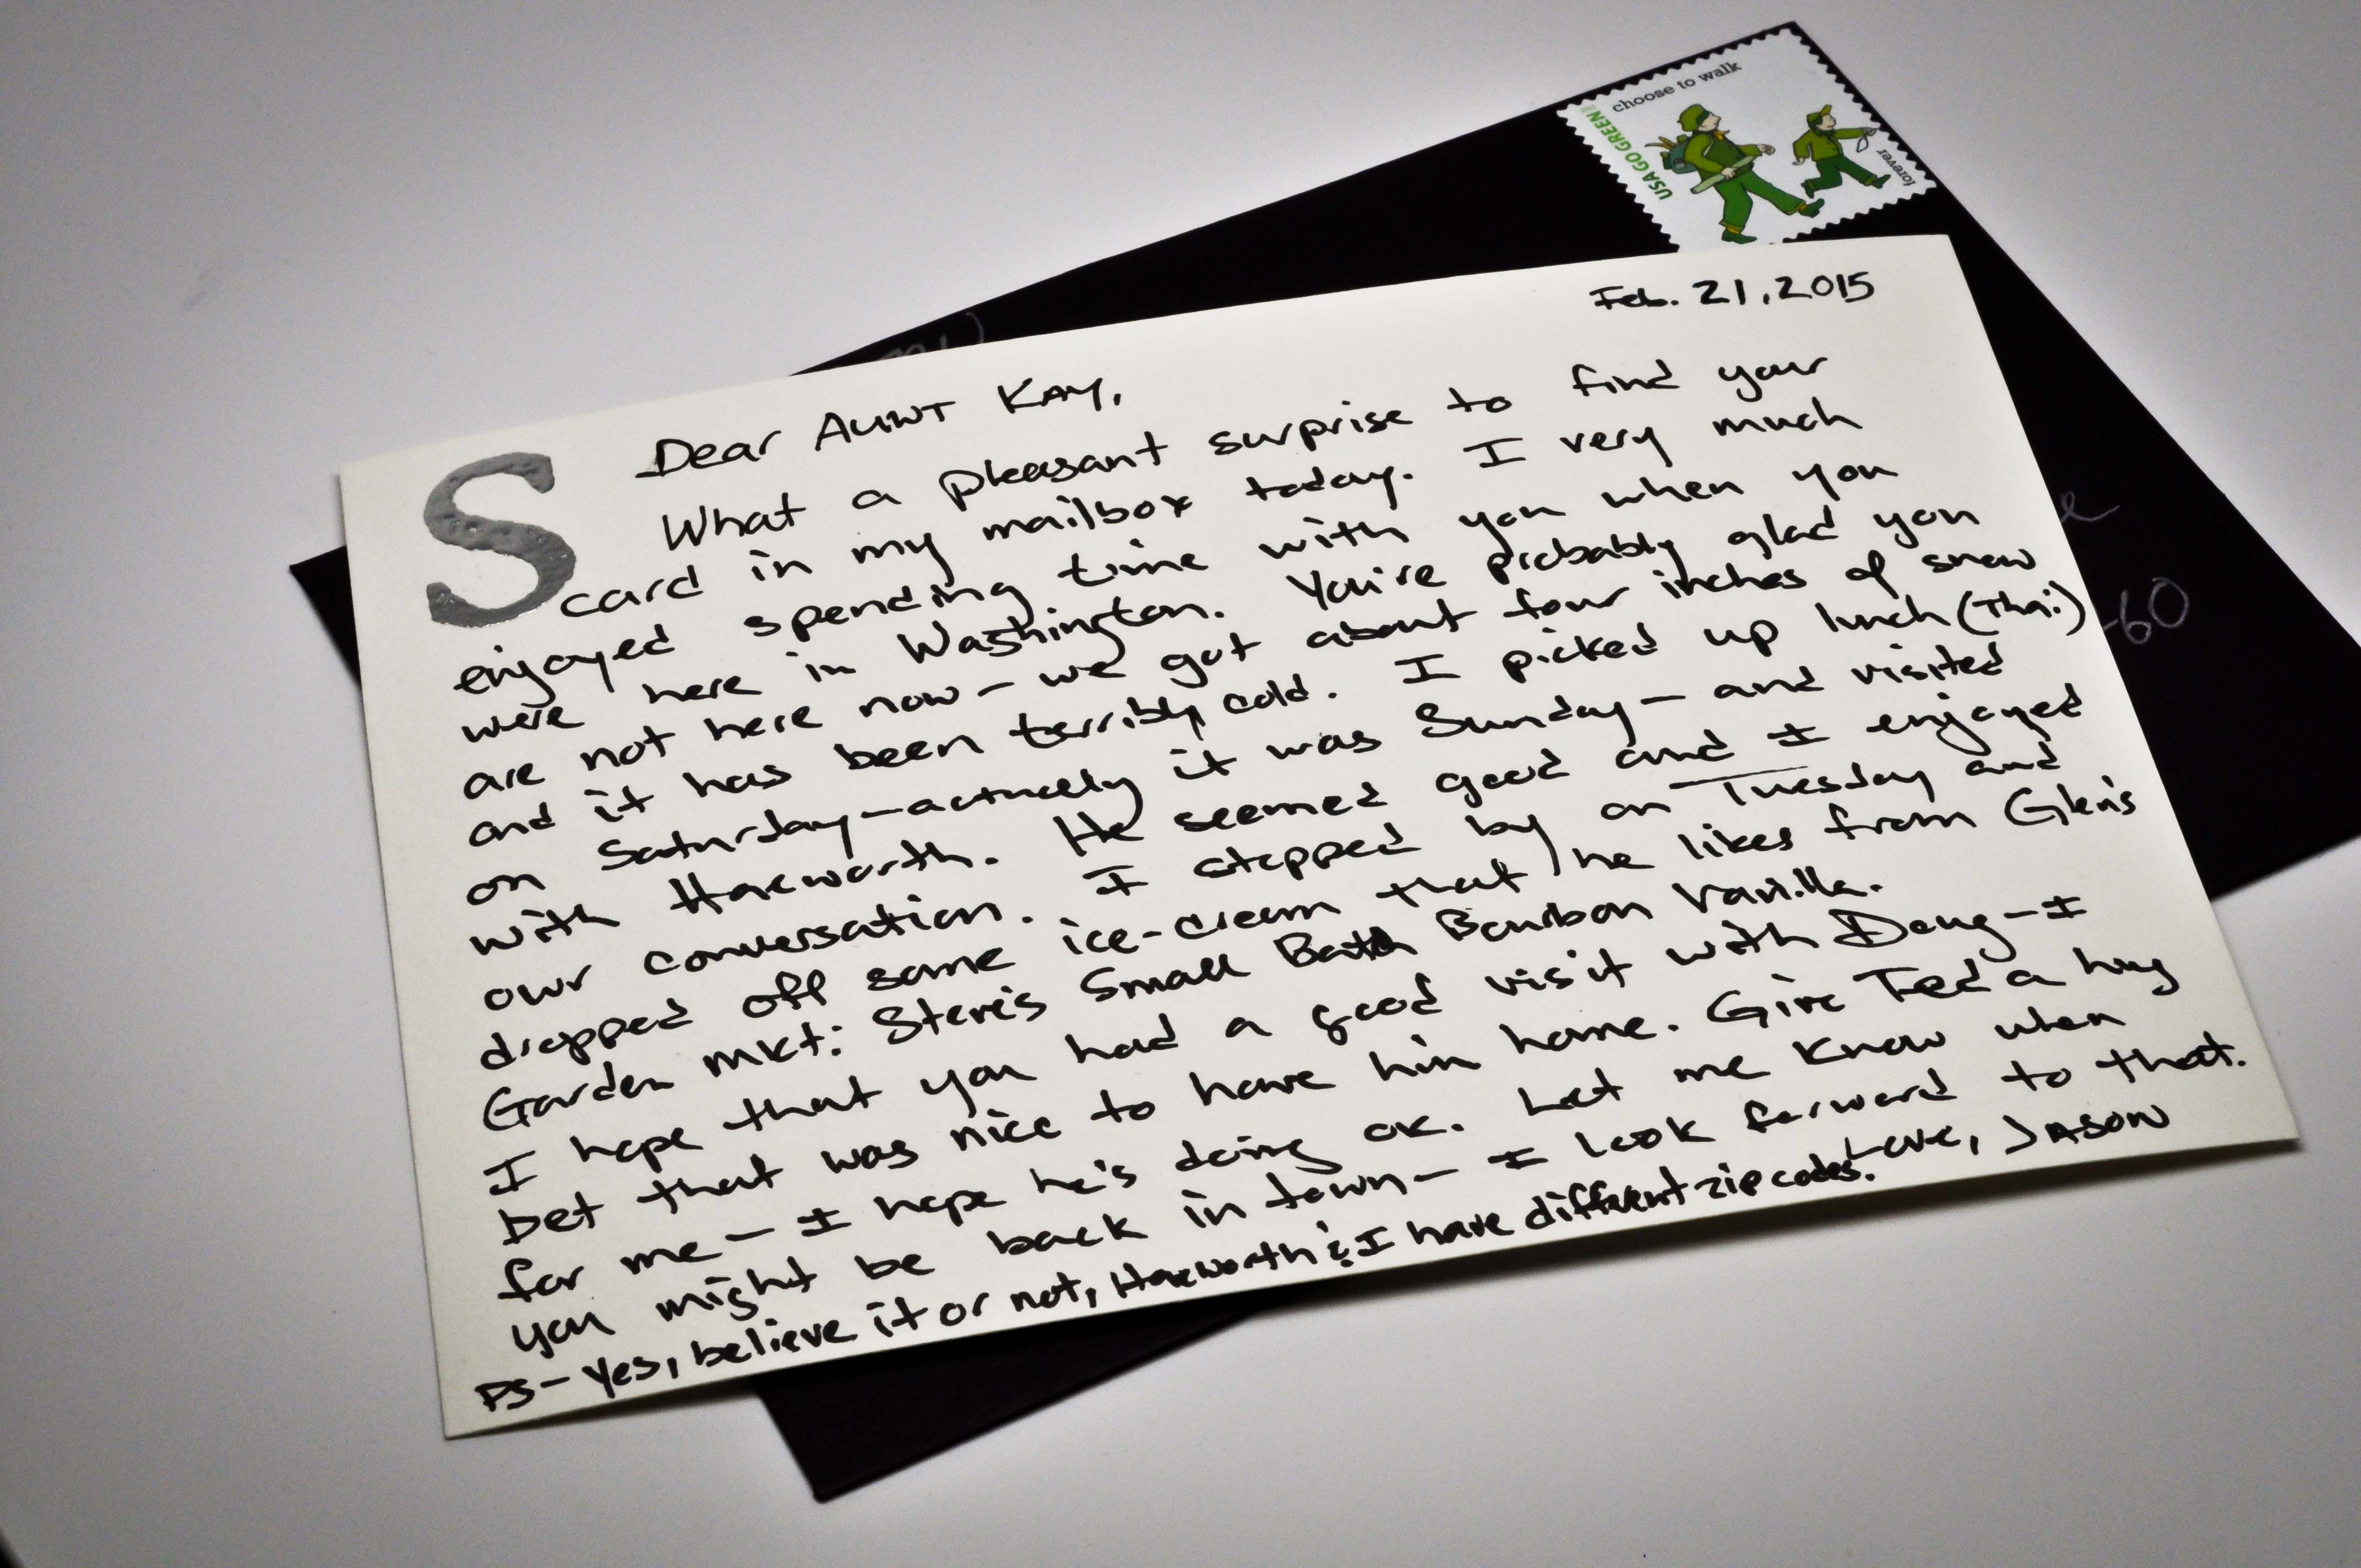 choose to walk
USA GO GREEN
forever
Feb. 21, 2015
S
Dear Aunt Kay,
What a pleasant surprise to find your
card in my mailbox today. I very much
enjoyed spending time with you when you
were here in Washington. You're probably glad you
are not here now – we got about four inches of snow
and it has been terribly cold. I picked up lunch (Thai)
on Saturday – actually it was Sunday – and visited
with Haeworth. He seemed good and I enjoyed
our conversation. I stopped by on Tuesday and
dropped off some ice-cream that he likes from Glen's
Garden Mkt: Steve's Small Batch Bourbon Vanilla.
I hope that you had a good visit with Doug – I
bet that was nice to have him home. Give Ted a hug
for me – I hope he's doing ok. Let me know when
you might be back in town – I look forward to that.
Love, Jason
PS – Yes, believe it or not, Haeworth & I have different zip codes.
-60